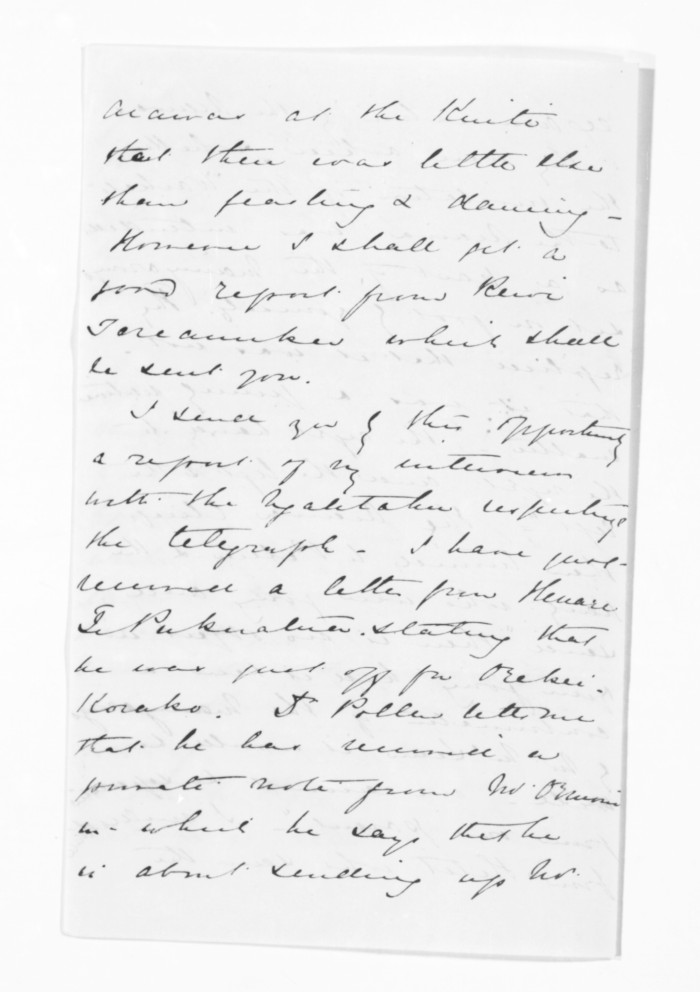 at the Kuiti
that there was little else
than feasting & dancing -
However I shall get a
good report from Rewi
which shall
be sent you.
I send you by this opportunity
a report of my interview
with the Ngatitahu respecting
the telegraph - I have just
received a letter from Henare
Te Pukuatua stating that
he was just off for Orakei-
Korako. Dr Pollen tells me
that he has received a
private note from Mr Ormond
in which he says that he
is about sending up Mr